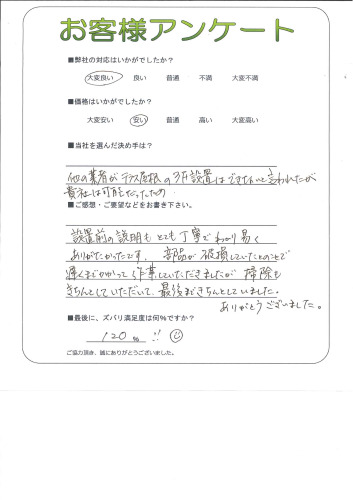 お客様アンケート
■弊社の対応はいかがでしたか？
大変良い 良い 普通 不満 大変不満
■価格はいかがでしたか？
大変安い 安い 普通 高い 大変高い
■当社を選んだ決め手は？
他の業者がテラス屋根の3F設置はできないと言われたが
貴社は可能だったため
■ご感想・ご要望などをお書き下さい。
設置前の説明もとても丁寧でわかり易く
ありがたかったです。部品が破損していたとのことで
遅くまでかかって作業していただきましたが掃除も
きちんとしていただいて、最後まできちんとしていました。
ありがとうございました。
■最後に、ズバリ満足度は何%ですか？
120 % !!
ご協力頂き、誠にありがとうございました。